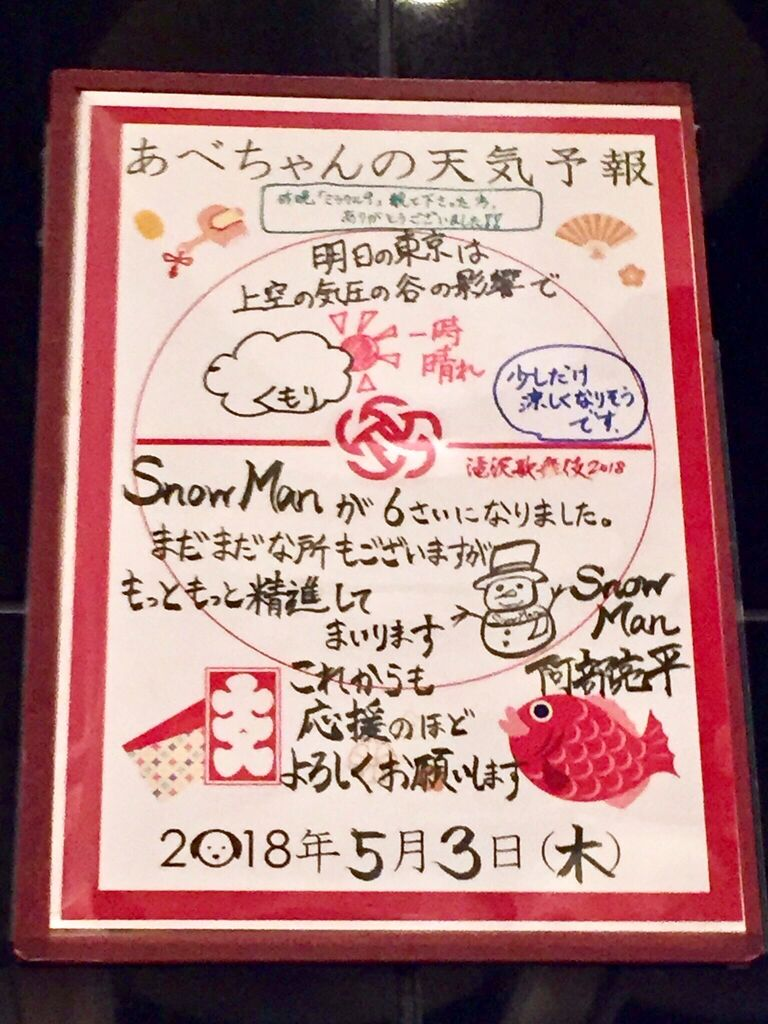 あべちゃんの天気予報
昨晩「ミラクル9」観て下さった方、
ありがとうございました!!
明日の東京は
上空の気圧の谷の影響で
くもり
一時
晴れ
少しだけ
涼しくなりそう
です。
滝沢歌舞伎2018
Snow Manが6さいになりました。
まだまだな所もございますが
もっともっと精進して
まいります
Snow
Man
阿部亮平
これからも
応援のほど
よろしくお願いします
大入
2018年5月3日(木)